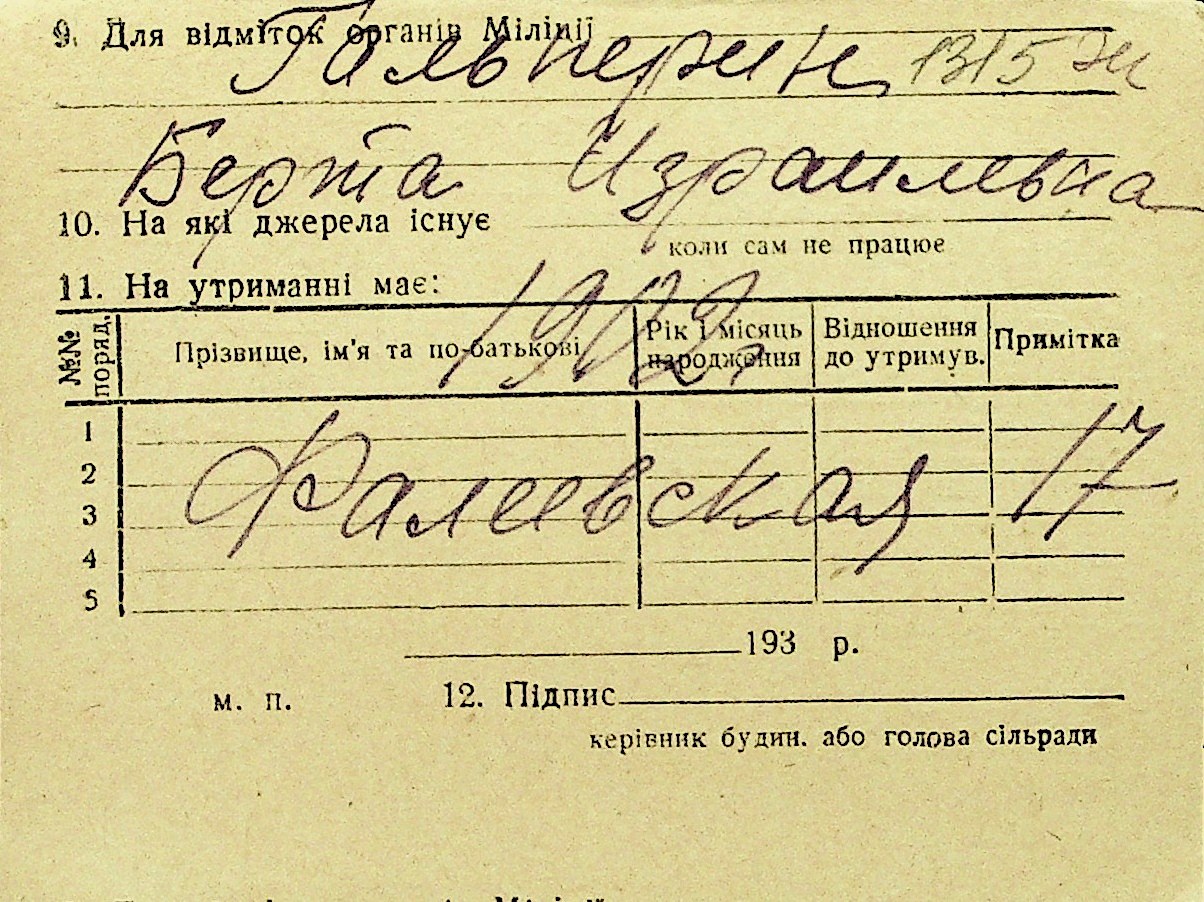 9. Для відміток органів Міліції
Гальперин 1315
Берта Израилевна
10. На які джерела існує
коли сам не працює
11. На утриманні має:
1902
№№ поряд.
Прізвище, ім'я та по-батькові
Рік і місяць народження
Відношення до утримув.
Примітка
1
2
3
4
5
Фалеевская 17
193 р.
м. п.
12. Підпис
керівник будин. або голова сільради